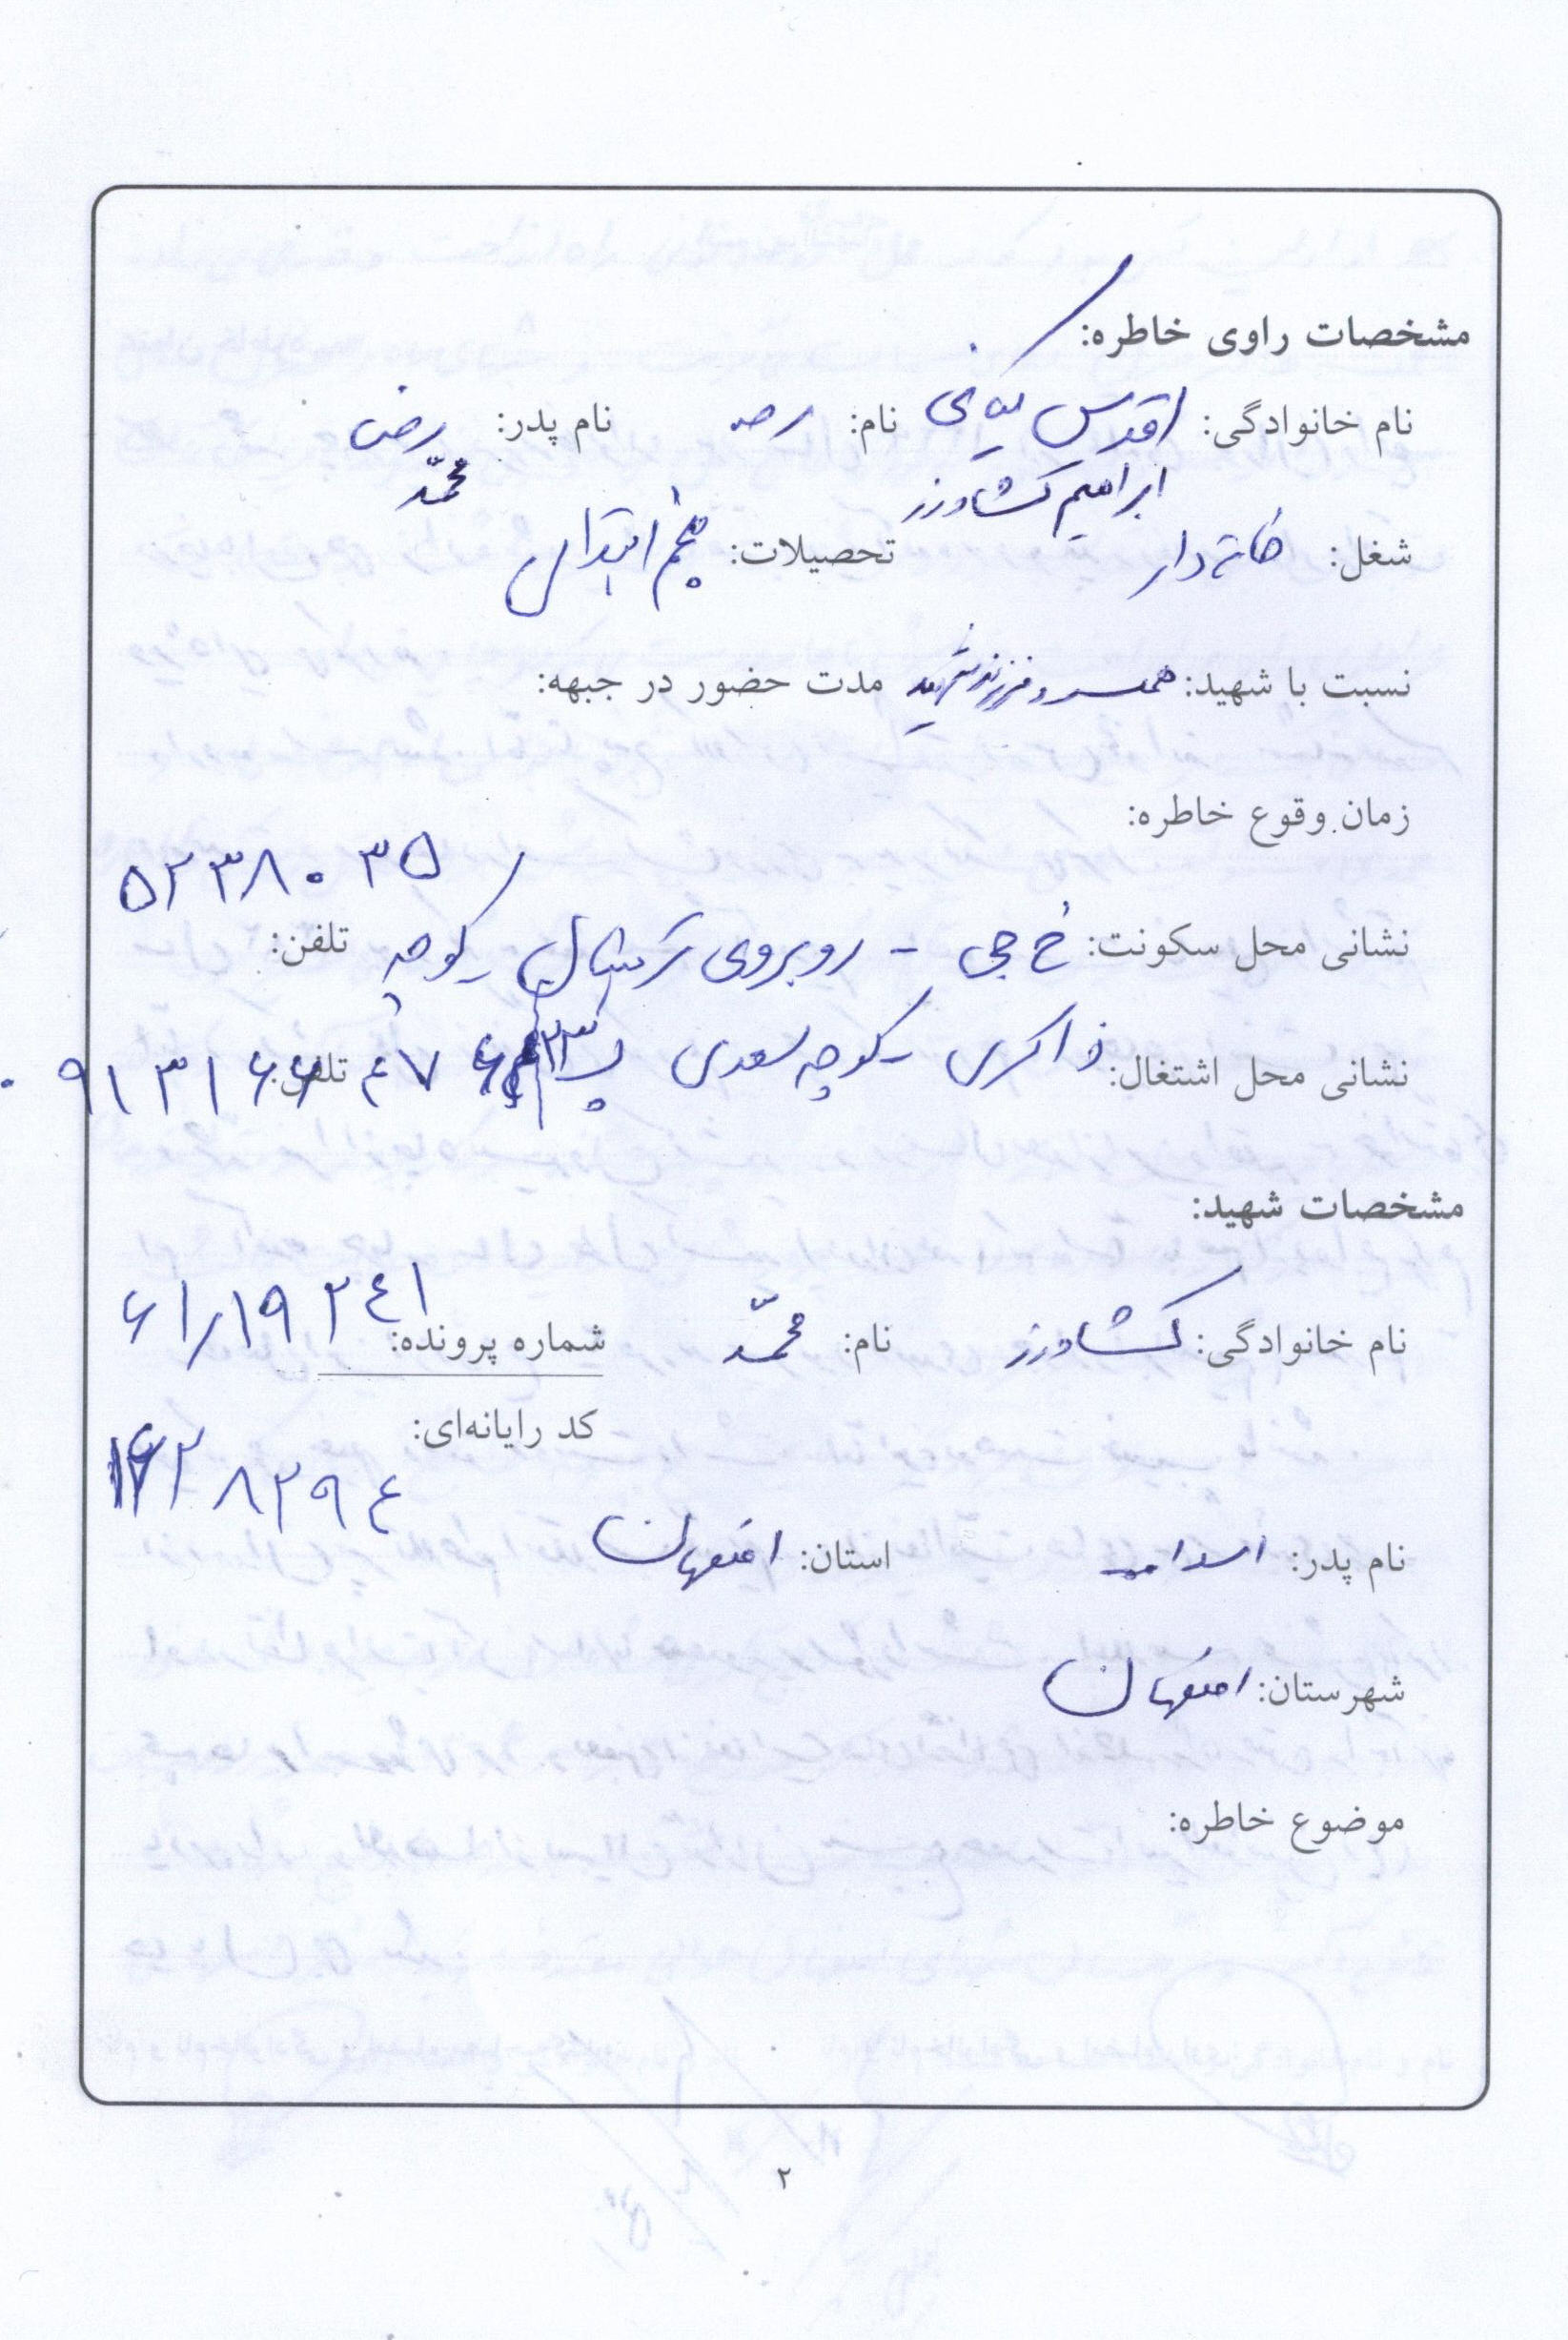 مشخصات راوی خاطره:
نام خانوادگی: اقدس نام: نام پدر: رضا
ابراهیم کشاورز محمّد
شغل: خانه دار تحصیلات: پنجم ابتدایی
نسبت با شهید: همسر و فرزند شهید مدت حضور در جبهه:
زمان وقوع خاطره:
۵۲۳۸۰۳۵
نشانی محل سکونت: خ جی - روبروی ترمینال - کوچه تلفن:
نشانی محل اشتغال: ذاکری - کوچه سعدی پ ۲۳ تلفن:
مشخصات شهید:
نام خانوادگی: کشاورز نام: محمّد شماره پرونده: ۶۱/۱۹۲۴۱
کد رایانه‌ای:
نام پدر: اسداله استان: اصفهان
شهرستان: اصفهان
موضوع خاطره:
۲